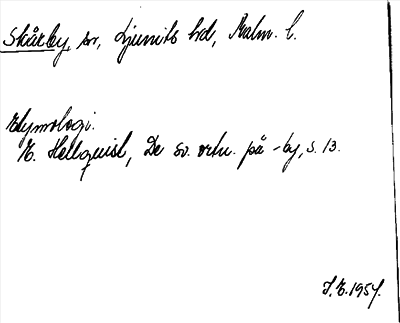 Skårby, sn, Ljunits hd, Malm. l.
Etymologi.
E. Hellquist, De sv. ortn. på -by, s. 13.
I.E. 1954.